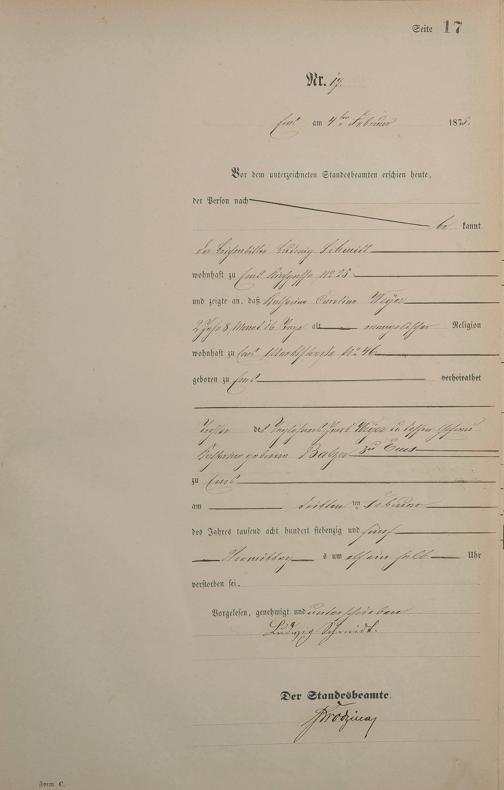 Seite 17
Nr. 17.
Ems am 4ten Februar 1875.
Vor dem unterzeichneten Standesbeamten erschien heute,
der Person nach
be kannt
der Ludwig Schmidt
wohnhaft zu Ems, No 25
und zeigte an, daß Katharina Caroline Meyer
2 Jahr 8 Monat 16 Tage alt evangelischer Religion
wohnhaft zu Ems No 46
geboren zu Ems verheirathet
Tochter des Meyer und dessen Ehefrau
geborene Balzer zu Ems
zu Ems
am dritten ten Februar
des Jahres tausend acht hundert siebenzig und fünf
Vormittag s um elf ein halb Uhr
verstorben sei.
Vorgelesen, genehmigt und unterschrieben
Ludwig Schmidt.
Der Standesbeamte.
Form C.